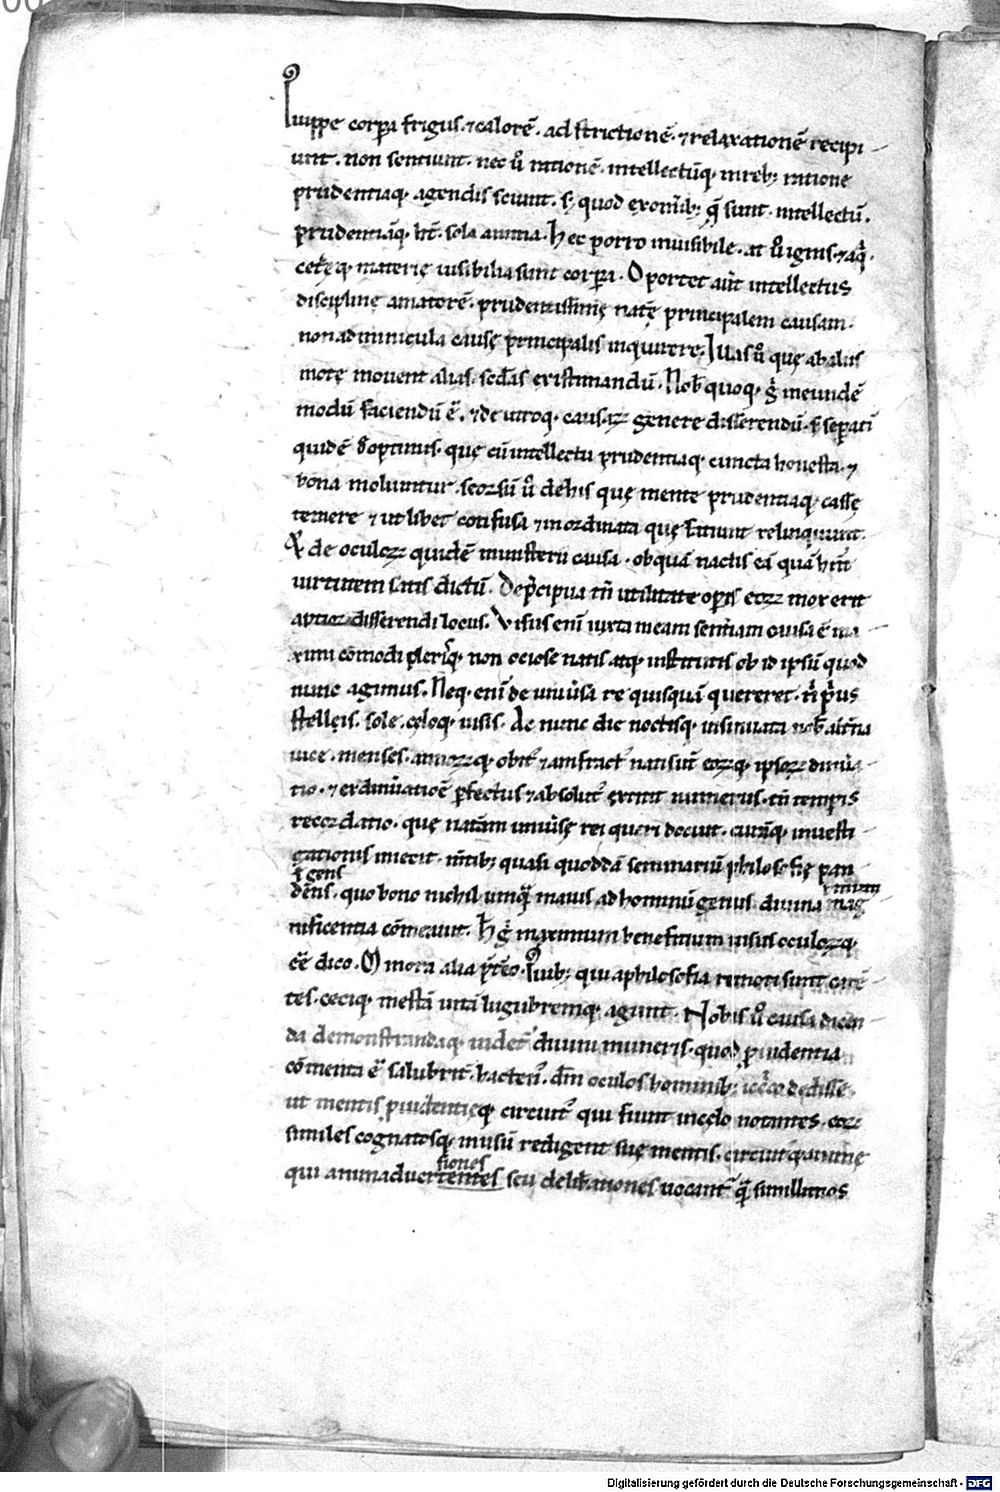 Quippe corpa frigus. ⁊ calorē. ad strictionē. ⁊ relaxationē recipi
unt. non sentiunt. nec ů rationē. intellectūq. in reb; ratione
prudentiaq. agendis sciunt. s; quod ex omib; q̄ sunt. intellectū.
prudentiāq. ht̄. sola anima. Hec porro inuisibile. at ů ignis. ⁊ aq̄.
cetęq materię uisibilia sunt corpa. Oportet aūt intellectus
disciplinę amatorē. prudentissimę natę principalem causam.
non adminicula causę principalis inquirere; Illas ů quę ab aliis
motę mouent alias. scd̄as existimandū. Nob̄ quoq. g̊ in eundē
modū faciendū ē. ⁊ de utroq. causaꝝ genere disserendū. s; separati
quidē d̄ optimis. quę cū intellectu prudentiaq. cuncta honesta. ⁊
bona moliuntur. seorsū ů de his quę mente prudentiaq. cassę
temere ⁊ ut libet confusa ⁊ inordinata quę fiunt relinquunt.
Ac de oculoꝝ quidē ministerii causa. ob quā nacti s̄ eā quā hn̄t
uirtutem satis dictū. De p̄cipua tn̄ utilitate opis eoꝝ mox erit
aptior disserendi locus. Visus enī iuxta meam sentiam causa ē ma
ximi cōmodi plerisq. non ociose natis atq. institutis ob id ipsū quod
nunc agimus. Neq. enī de uniůsa re quisquā quereret. n̄ p̄us
stelleis. sole. celoq. uisis. At nunc die noctisq. insinuata nob̄ altn̄a
uice. menses. annoꝝq. obit ⁊ anfract nati sunt eoꝝq. ipsoꝝ dinůa
tio. ⁊ ex dinůatioē pfectus ⁊ absolut extitit numerus. tū tempis
recordatio. quę natam uniůsę rei queri docuit. curāq. inuesti
gationis iniecit. mtib; quasi quoddā seminariū philosofię pan
gens
dens. quo bono nichil umq̄ maius ad hominū genus diuina mag
nificentia cōmeauit. H g̊ maximum benefitium uisus oculoꝝq.
eē dico. Minora alia p̄teo. Quib; qui a philosofia remoti sunt carē
tes. ceciq. mestā uitā lugubremq. agunt. Nobis ů causa dicen
da demonstrandaq. uidet diuini muneris. quod puidentia
cōmenta ē salubrit. hacten. dm̄ oculos hominib; idcco dedisse.
ut mentis puidentięq. circuit qui fiunt in cęlo notantes. eoꝝ
similes cognatosq. in usū redigent suę mentis. circuitq animę
siones
qui animaduertentes seu delib̄ationes uocant q̄ simillimos
Digitalisierung gefördert durch die Deutsche Forschungsgemeinschaft - DFG